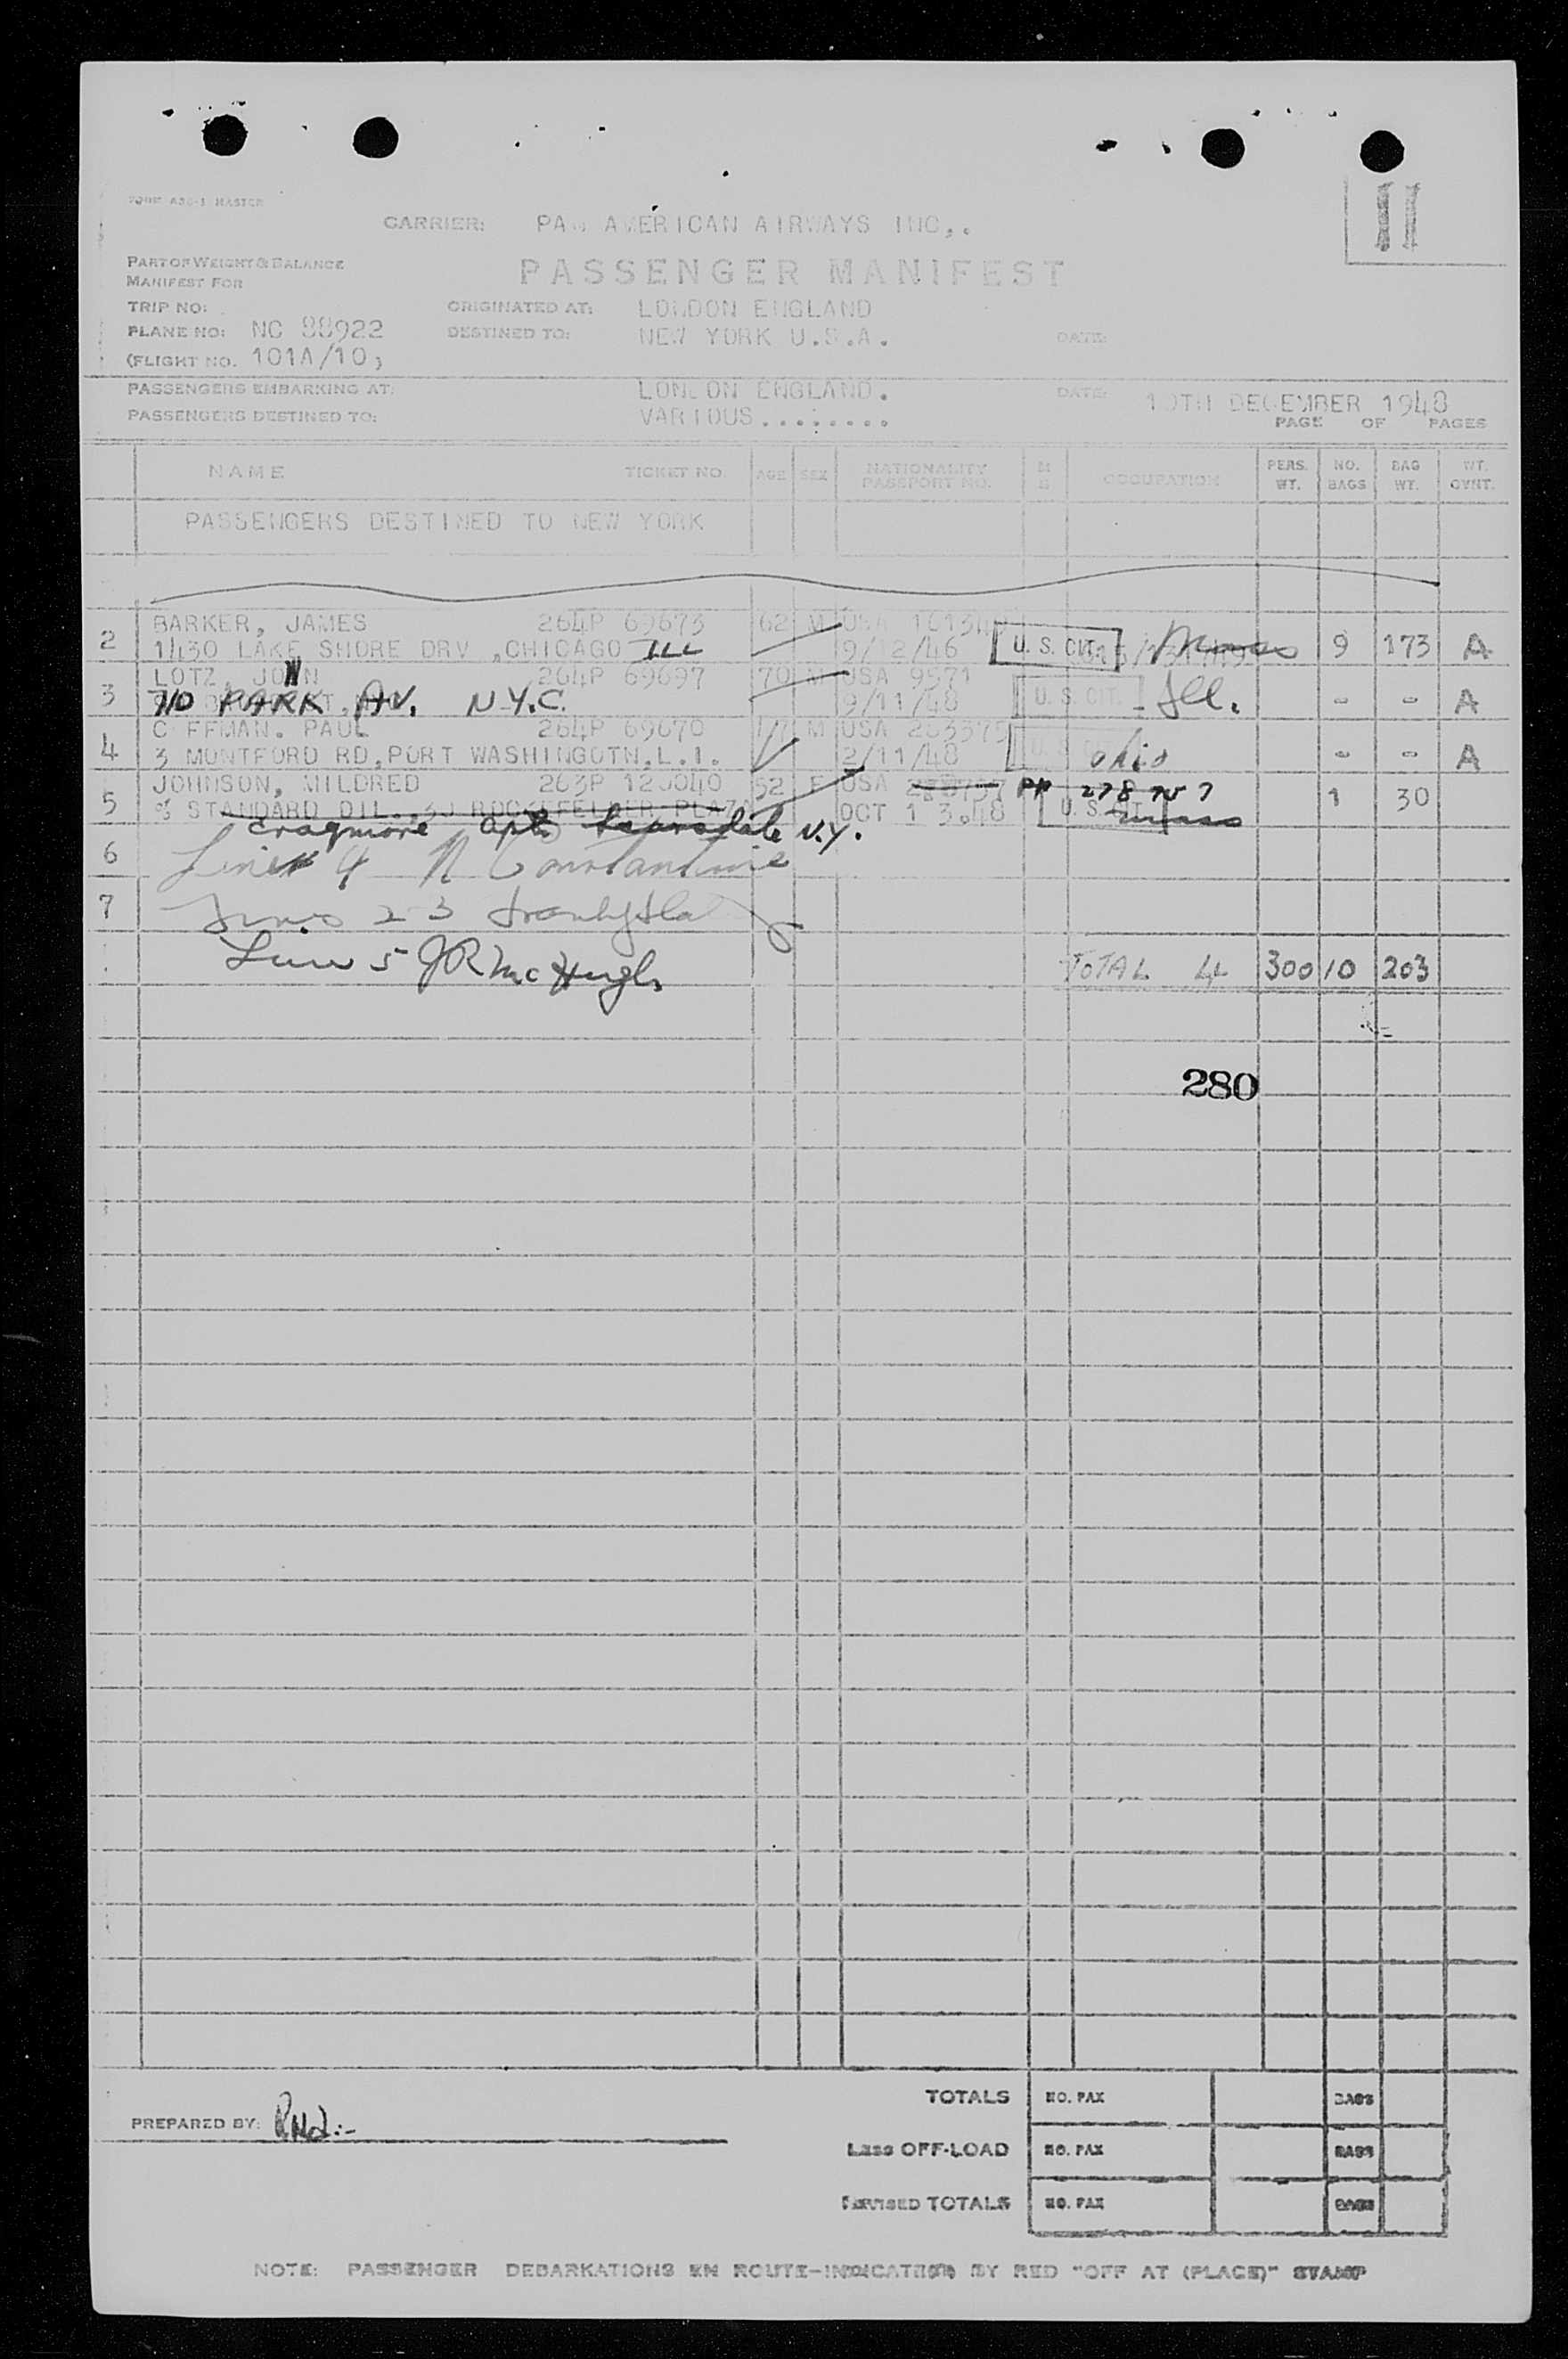 FORM ASC-1 MASTER
11
CARRIER: PAN AMERICAN AIRWAYS INC,.
PART OF WEIGHT & BALANCE
MANIFEST FOR
PASSENGER MANIFEST
TRIP NO: ORIGINATED AT: LONDON ENGLAND
PLANE NO: NC 88922 DESTINED TO: NEW YORK U.S.A. DATE:
(FLIGHT NO. 101A/10,
PASSENGERS EMBARKING AT: LONDON ENGLAND. DATE: 10TH DECEMBER 1948
PASSENGERS DESTINED TO: VARIOUS........ PAGE OF PAGES
NAME TICKET NO. AGE SEX NATIONALITY PASSPORT NO. OCCUPATION PERS. WT. NO. BAGS BAG WT. WT. CVNT.
PASSENGERS DESTINED TO NEW YORK
BARKER, JAMES 264P 69673 62 M USA
2 1430 LAKE SHORE DRV ,CHICAGO ILL 9/12/46 U. S. CIT. Mass 9 173 A
LOTZ, JOHN 264P 69697 70 M USA 9571
3 710 PARK AV. N.Y.C. 9/11/48 U. S. CIT. Ill. - - A
C FFMAN. PAUL 264P 69670 M USA 263375
4 3 MONTFORD RD,PORT WASHINGOTN.L.I. 2/11/48 ohio - - A
JOHNSON, MILDRED 263P 120040 52 F USA PP
5 % STANDARD OIL.,30 ROCKEFELLER PLAZA OCT 1 3.48 U. S. CIT. mass 1 30
cragmore apts Scarsdale N.Y.
6 Line 4 N Constantine
7 Lines 2-3
Line 5 JR McHugh
TOTAL 4 300 10 203
280
TOTALS NO. PAX BAGS
PREPARED BY:
Less OFF-LOAD NO. PAX BAGS
REVISED TOTALS NO. PAX BAGS
NOTE: PASSENGER DEBARKATIONS EN ROUTE-INDICATED BY RED "OFF AT (PLACE)" STAMP